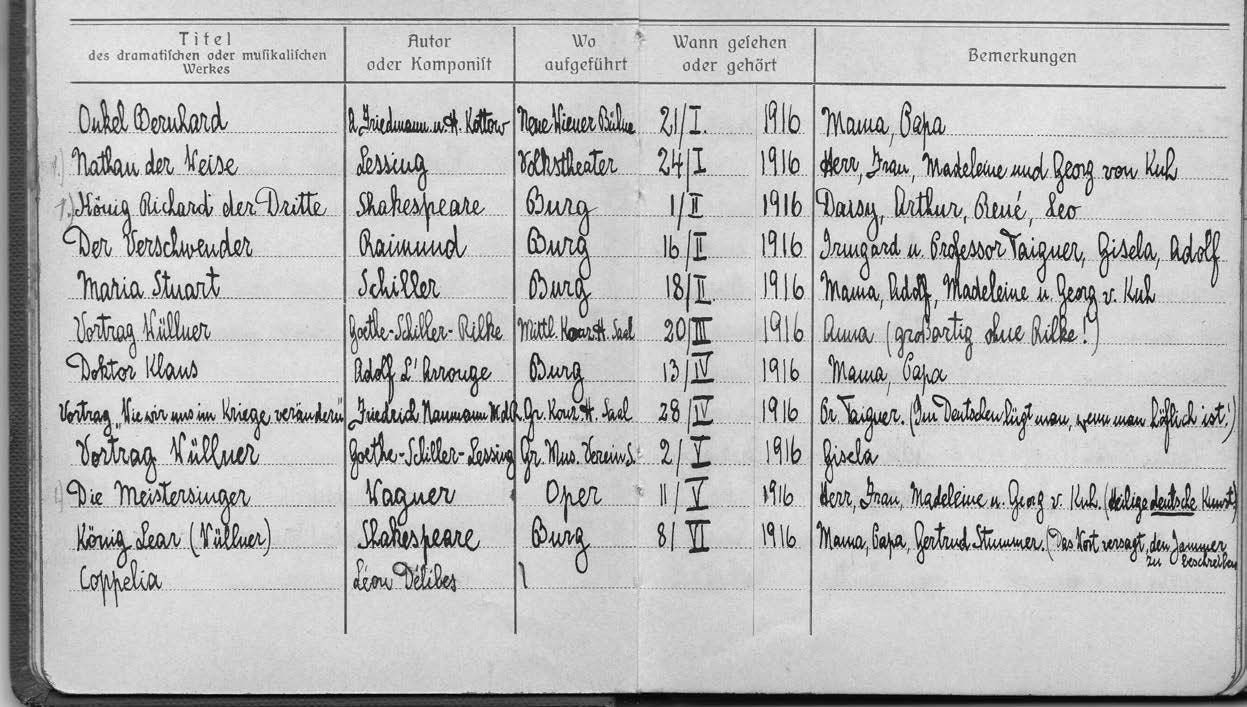 Titel des dramatischen oder musikalischen Werkes | Autor oder Komponist | Wo aufgeführt | Wann gesehen oder gehört | Bemerkungen
Onkel Bernhard | A. Friedmann u. H. Kottow | Neue Wiener Bühne | 21/I. 1916 | Mama, Papa
1.) Nathan der Weise | Lessing | Volkstheater | 24/I 1916 | Herr, Frau, Madeleine und Georg von Kuh
1.) König Richard der Dritte | Shakespeare | Burg | 1/II 1916 | Daisy, Arthur, René, Leo
Der Verschwender | Raimund | Burg | 16/II 1916 | Irmgard u. Professor Taigner, Gisela, Adolf
Maria Stuart | Schiller | Burg | 18/II 1916 | Mama, Adolf, Madeleine u. Georg v. Kuh
Vortrag Wüllner | Goethe-Schiller-Rilke | Mittl. Konz. H. Saal | 20/III 1916 | Anna (großartig ohne Rilke!)
Doktor Klaus | Adolf L'Arronge | Burg | 13/IV 1916 | Mama, Papa
Vortrag „Wie wir uns im Kriege verändern" | Friedrich Naumann M.d.R. | Gr. Konz. H. Saal | 28/IV 1916 | Pr. Taigner. (Im Deutschen lügt man, wenn man höflich ist!)
Vortrag Wüllner | Goethe-Schiller-Lessing | Gr. Mus. Verein S. | 2/V 1916 | Gisela
1.) Die Meistersinger | Wagner | Oper | 11/V 1916 | Herr, Frau, Madeleine u. Georg v. Kuh. (Heilige deutsche Kunst)
König Lear (Wüllner) | Shakespeare | Burg | 8/VI 1916 | Mama, Papa, Gertrud Stummer. (Das Wort versagt, den Jammer
zu beschreiben
Coppelia | Léon Délibes